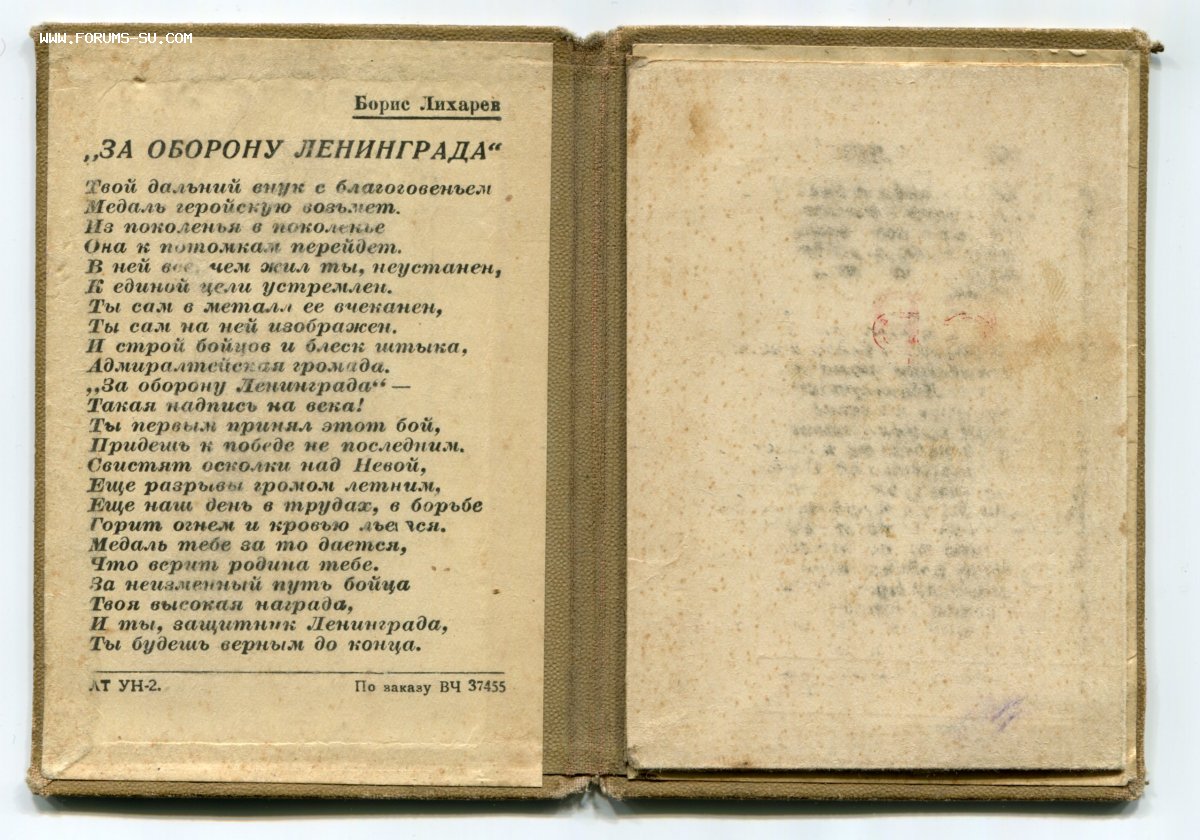 WWW.FORUMS-SU.COM
Борис Лихарев
„ЗА ОБОРОНУ ЛЕНИНГРАДА“
Твой дальний внук с благоговеньем
Медаль геройскую возьмет.
Из поколенья в поколенье
Она к потомкам перейдет.
В ней все, чем жил ты, неустанен,
К единой цели устремлен.
Ты сам в металл ее вчеканен,
Ты сам на ней изображен.
И строй бойцов и блеск штыка,
Адмиралтейская громада.
„За оборону Ленинграда“ —
Такая надпись на века!
Ты первым принял этот бой,
Придешь к победе не последним.
Свистят осколки над Невой,
Еще разрывы громом летним,
Еще наш день в трудах, в борьбе
Горит огнем и кровью льется.
Медаль тебе за то дается,
Что верит родина тебе.
За неизменный путь бойца
Твоя высокая награда,
И ты, защитник Ленинграда,
Ты будешь верным до конца.
УН-2. По заказу ВЧ 37455